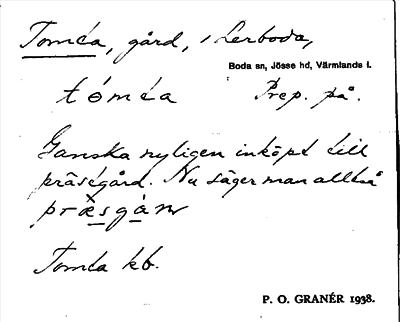 Toméa, gård, i Lerboda,
Boda sn, Jösse hd, Värmlands l.
tómèa Prep. på.
Ganska nyligen inköpt till
prästgård. Nu säger man alltså
præsgàɳ
Toméa kb.
P. O. GRANÉR 1938.